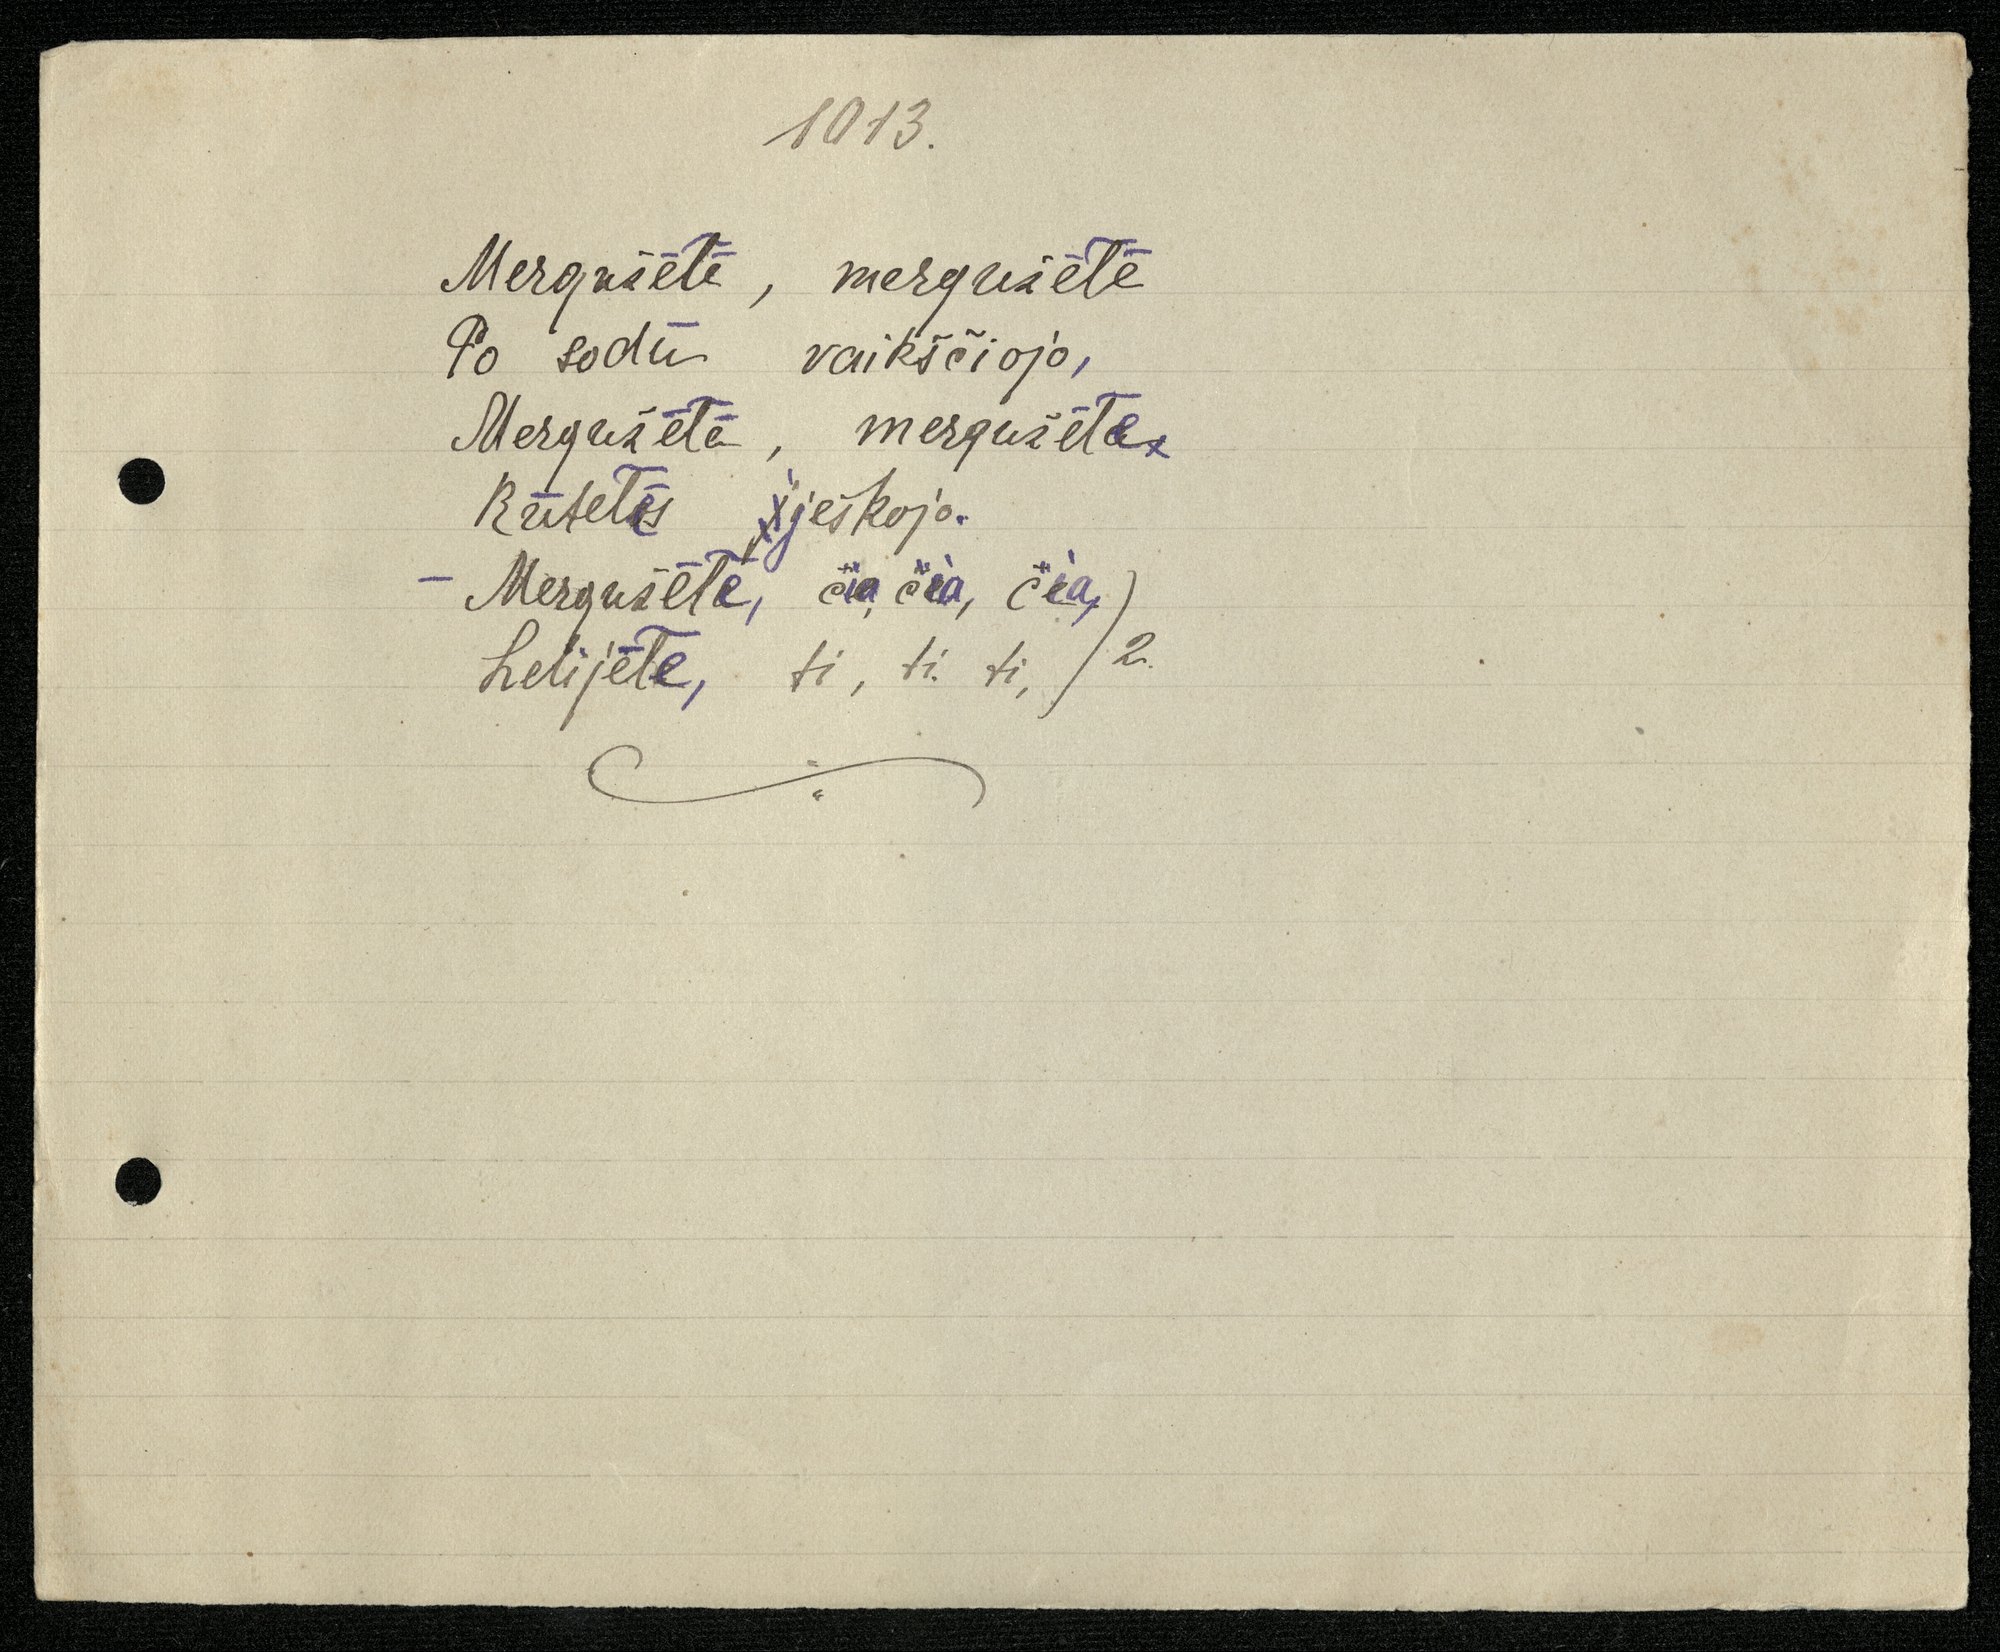 1013.
Mergužētē, mergužētē
Po sodū vaikščiojo,
Mergužētē, mergužēte
Rūtelēs jieškojo.
– Mergužēte, čia, čia, čia,
Lelijēte, ti, ti. ti, ) 2.